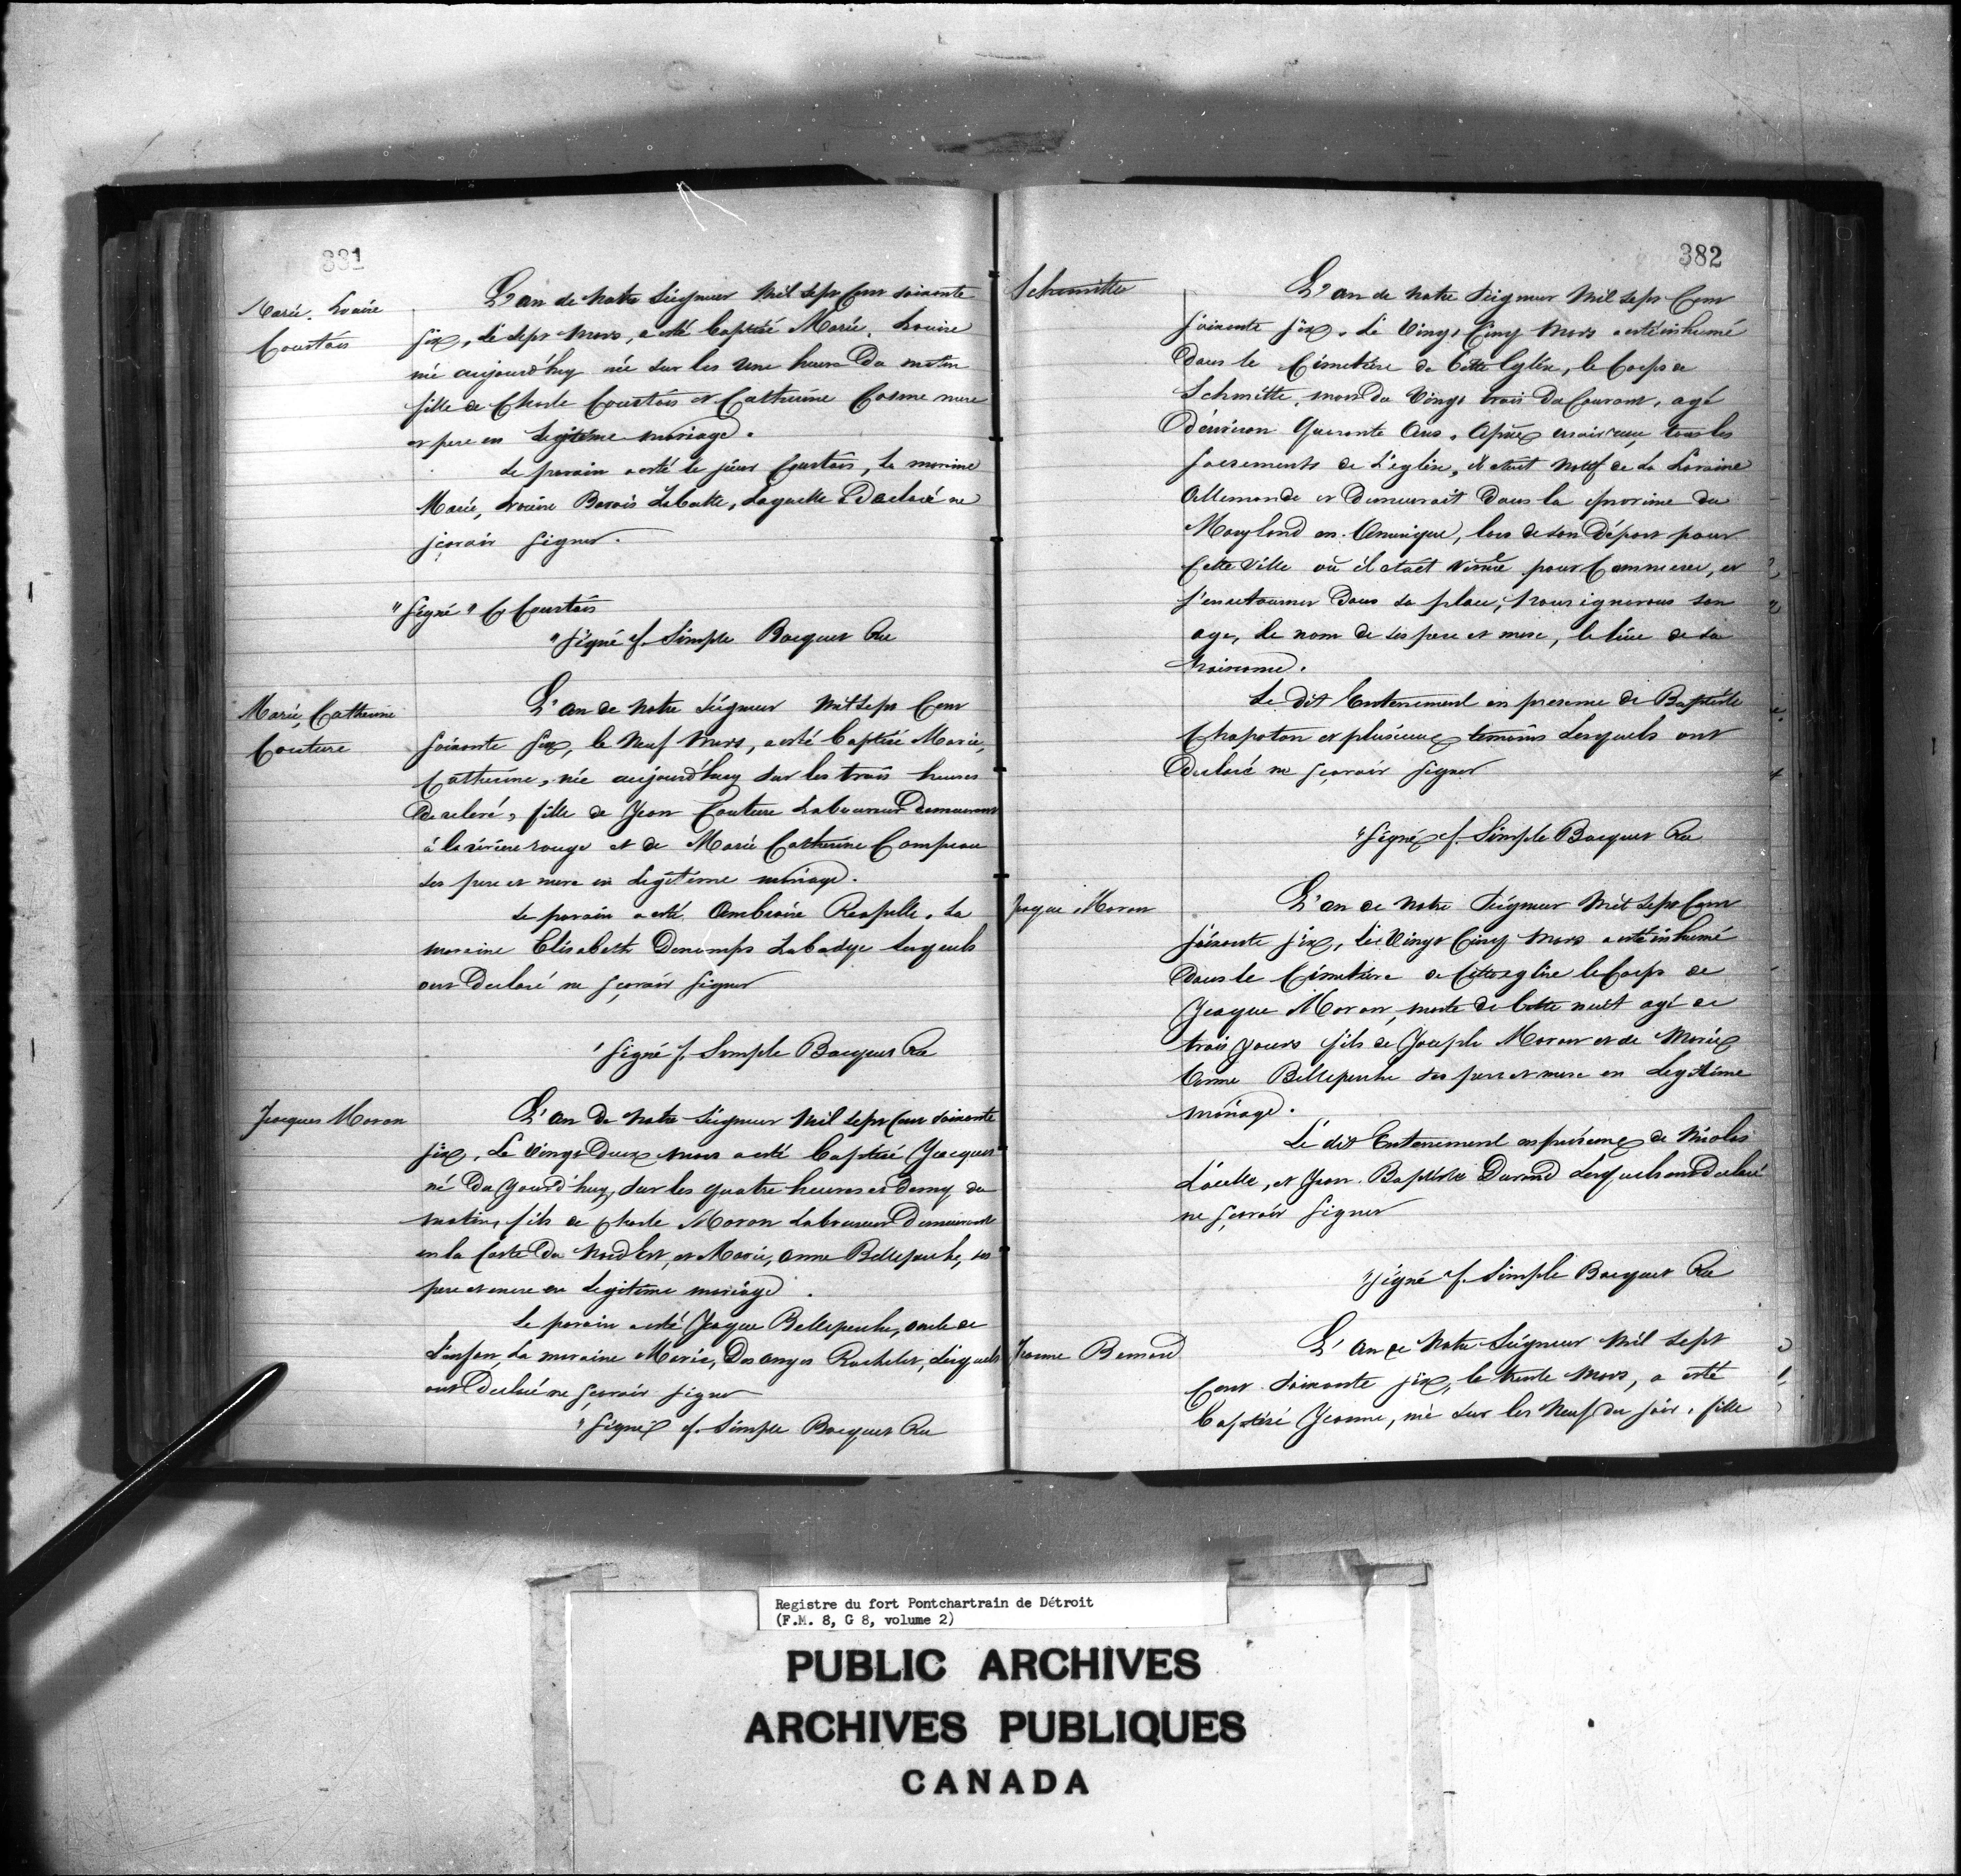 381
Marie. Louise
Courtois
L'an de Notre Seigneur Mil Sept Cent soixante
six, le sept Mars, a esté baptisé Marie. Louise
née aujourd'huy née sur les une heure Du matin
fille de Charle Courtois et Catherine Cosme mere
et pere en Legitime mariage.
Le parain a esté le sieur Courtois, La maraine
Marie, Louise Barois Labutte, Laquelle a Declaré ne
scavoir signer.
"Signé" C Courtois
"Signé f. Simple Bocquet Rec
Marie, Catherine
Couture
L'an de Notre Seigneur Mil Sept Cent
soixante six, le Neuf Mars, a esté baptisé Marie,
Catherine, née aujourd'huy sur les trois heures
De relevé, fille de Jean Couture Laboureur Demeurant
à la riviere rouge et de Marie Catherine Campeau
ses pere et mere en Legitime mariage.
Le parain a esté Ambroise Reapelle. La
maraine Elisabeth Denomps Labadye Lesquels
ont Declaré ne scavoir signer
"Signé f. Simple Bocquet Rec
Jacques Moran
L'an De Notre Seigneur Mil Sept Cent soixante
six, Le Vingt Deux mars a esté baptisé Jacques
né Du Jourd'huy, sur les quatre heures et Demy du
matin, fils de Charle Moran Laboureur Demeurant
en la Coste Du Nord Est, et Marie, Anne Belleperche, ses
pere et mere en Legitime mariage.
Le parain a esté Jaque Belleperche, oncle de
L'enfan, La maraine Marie, Des anges Rochelet, Lesquels
ont Declaré ne scavoir signer
"Signé f. Simple Bocquet Rec
382
Schmitte
L'an de Notre Seigneur Mil Sept Cent
soixante six. Le Vingt Cinq Mars a esté inhumé
Dans le Cimetiere de Cette Eglise, le Corps de
Schmitte, mort du Vingt trois Du Courant, agé
D'environ Quarante Ans. Apres avoir receu tous les
sacrements de L'eglise, il etait Natif de La Loraine
Allemande et Demeurait Dans la province du
Maryland en Amerique, lors de son Départ pour
Cette Ville où il etait venue pour Commercer, et
s'en retourner Dans sa place, Nous ignorons son
age, le nom de ses pere et mere, le lieu de sa
Naissance.
Le Dit Enterrement en presence de Baptiste
Chapoton et plusieurs temoins Lesquels ont
Declaré ne scavoir signer
"Signé f. Simple Bocquet Rec
Jaque Moran
L'an de Notre Seigneur Mil Sept Cent
soixante six, le Vingt Cinq Mars a esté inhumé
Dans le Cimetiere de Cette eglise le Corps de
Jaque Moran, morte de Cette nuit agé de
trois jours fils de Joseph Moran et de Marie
Anne Belleperche ses pere et mere en Legitime
mariage.
Le dit Enterrement en presence de Nicolas
Lacelle, et Jean. Baptiste Durand Lesquels ont Declaré
ne scavoir signer
"Signé f. Simple Bocquet Rec
Jeanne Bernard
L'an de Notre Seigneur Mil Sept
Cent soixante six, le trente Mars, a esté
baptisé Jeanne, née sur les Neuf du soir, fille
Registre du fort Pontchartrain de Détroit
(F.M. 8, G 8, volume 2)
PUBLIC ARCHIVES
ARCHIVES PUBLIQUES
CANADA